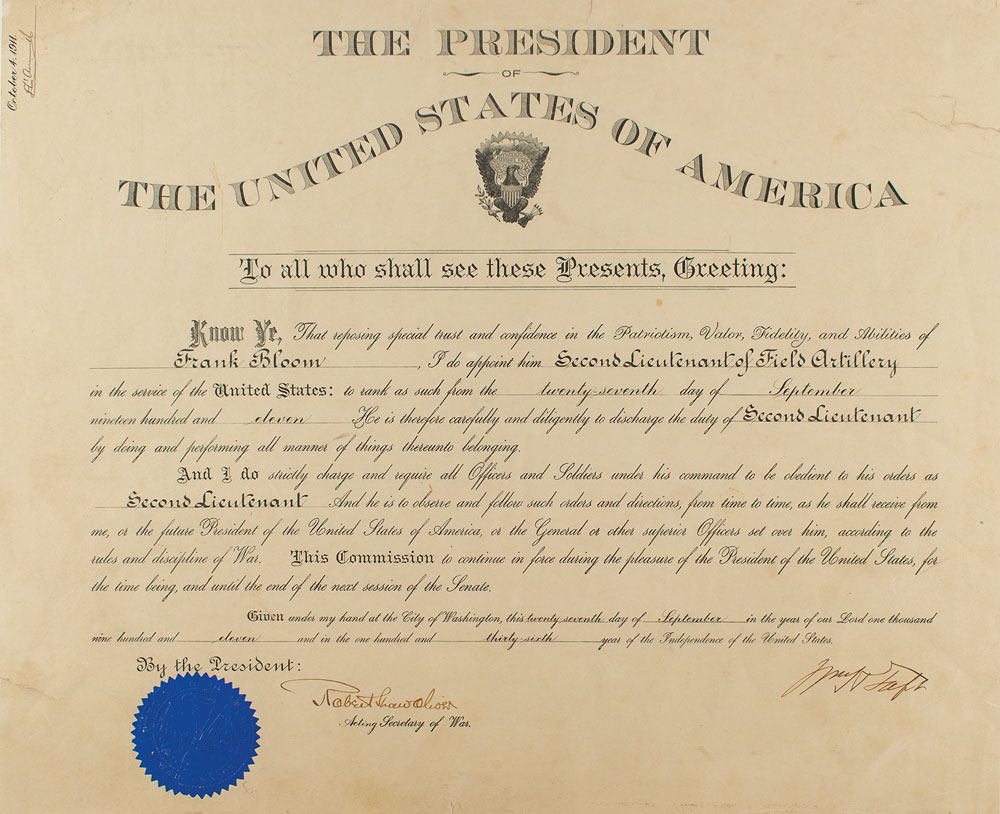 October 4, 1911.
THE PRESIDENT
OF
THE UNITED STATES OF AMERICA
To all who shall see these Presents, Greeting:
Know Ye, That reposing special trust and confidence in the Patriotism, Valor, Fidelity, and Abilities of
Frank Bloom, I do appoint him Second Lieutenant of Field Artillery
in the service of the United States: to rank as such from the twenty-seventh day of September
nineteen hundred and eleven He is therefore carefully and diligently to discharge the duty of Second Lieutenant
by doing and performing all manner of things thereunto belonging.
And I do strictly charge and require all Officers and Soldiers under his command to be obedient to his orders as
Second Lieutenant And he is to observe and follow such orders and directions, from time to time, as he shall receive from
me, or the future President of the United States of America, or the General or other superior Officers set over him, according to the
rules and discipline of War. This Commission to continue in force during the pleasure of the President of the United States, for
the time being, and until the end of the next session of the Senate.
Given under my hand at the City of Washington, this twenty-seventh day of September in the year of our Lord one thousand
nine hundred and eleven and in the one hundred and thirty-sixth year of the Independence of the United States.
By the President:
Wm H Taft
Robert Shaw Oliver
Acting Secretary of War.